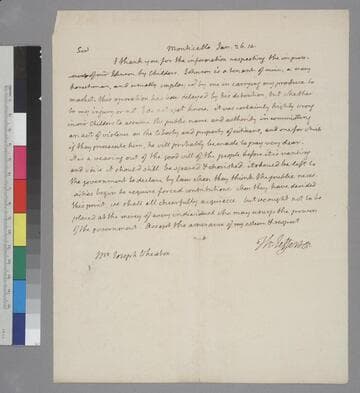 Sir Monticello Jan. 26. 14.
I thank you for the information respecting the impress-
ment of Johnson by Childers. Johnson is a tenant of mine, a very
honest man, and usually employed by me in carrying my produce to
market. this operation has been delayed by his detention, but whether
to my injury or not I do not yet know. it was certainly highly wrong
in mr Childers to assume the public name and authority in committing
an act of violence on the liberty and property of citizens, and one for which
if they prosecute him, he will probably be made to pay very dear.
it is a wearing out of the good will of the people before it is wanting
and as it should still be spared & cherished. it should be left to
the government to declare by law when they think the public neces-
sities begin to require forced contributions. when they have decided
this point we shall all cheerfully acquiesce. but we ought not to be
placed at the mercy of every individual who may usurp the powers
of the government. Accept the assurance of my esteem & respect
Th: Jefferson
Mr Joseph Wheaton